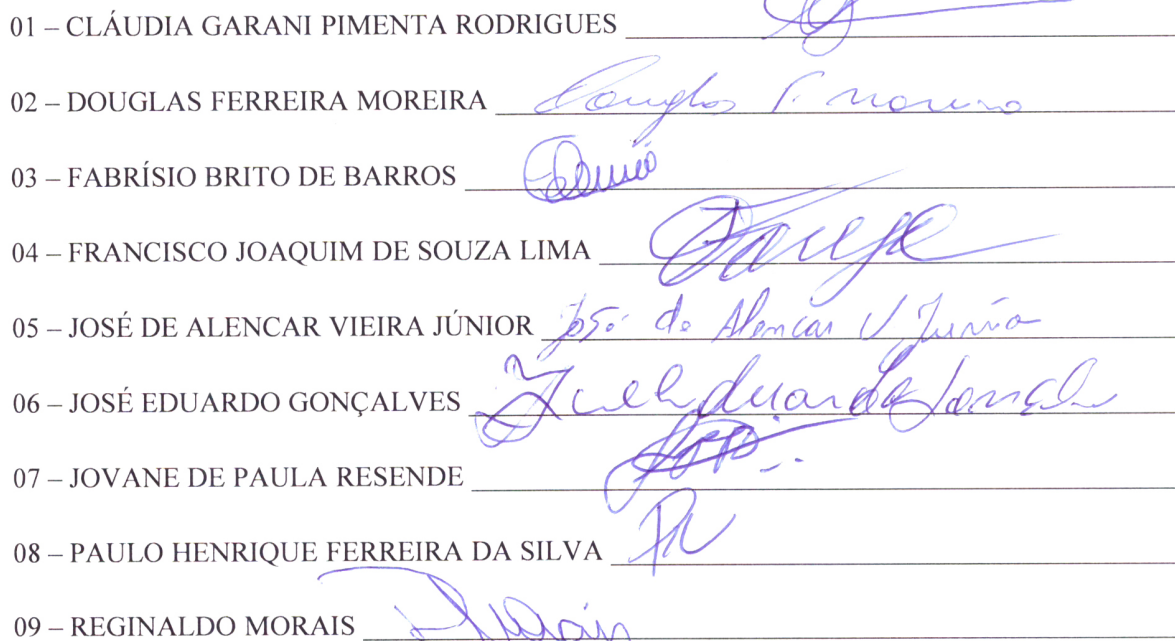 01 – CLÁUDIA GARANI PIMENTA RODRIGUES
02 – DOUGLAS FERREIRA MOREIRA Douglas F. Moreira
03 – FABRÍSIO BRITO DE BARROS
04 – FRANCISCO JOAQUIM DE SOUZA LIMA
05 – JOSÉ DE ALENCAR VIEIRA JÚNIOR José de Alencar V Júnior
06 – JOSÉ EDUARDO GONÇALVES
07 – JOVANE DE PAULA RESENDE
08 – PAULO HENRIQUE FERREIRA DA SILVA
09 – REGINALDO MORAIS